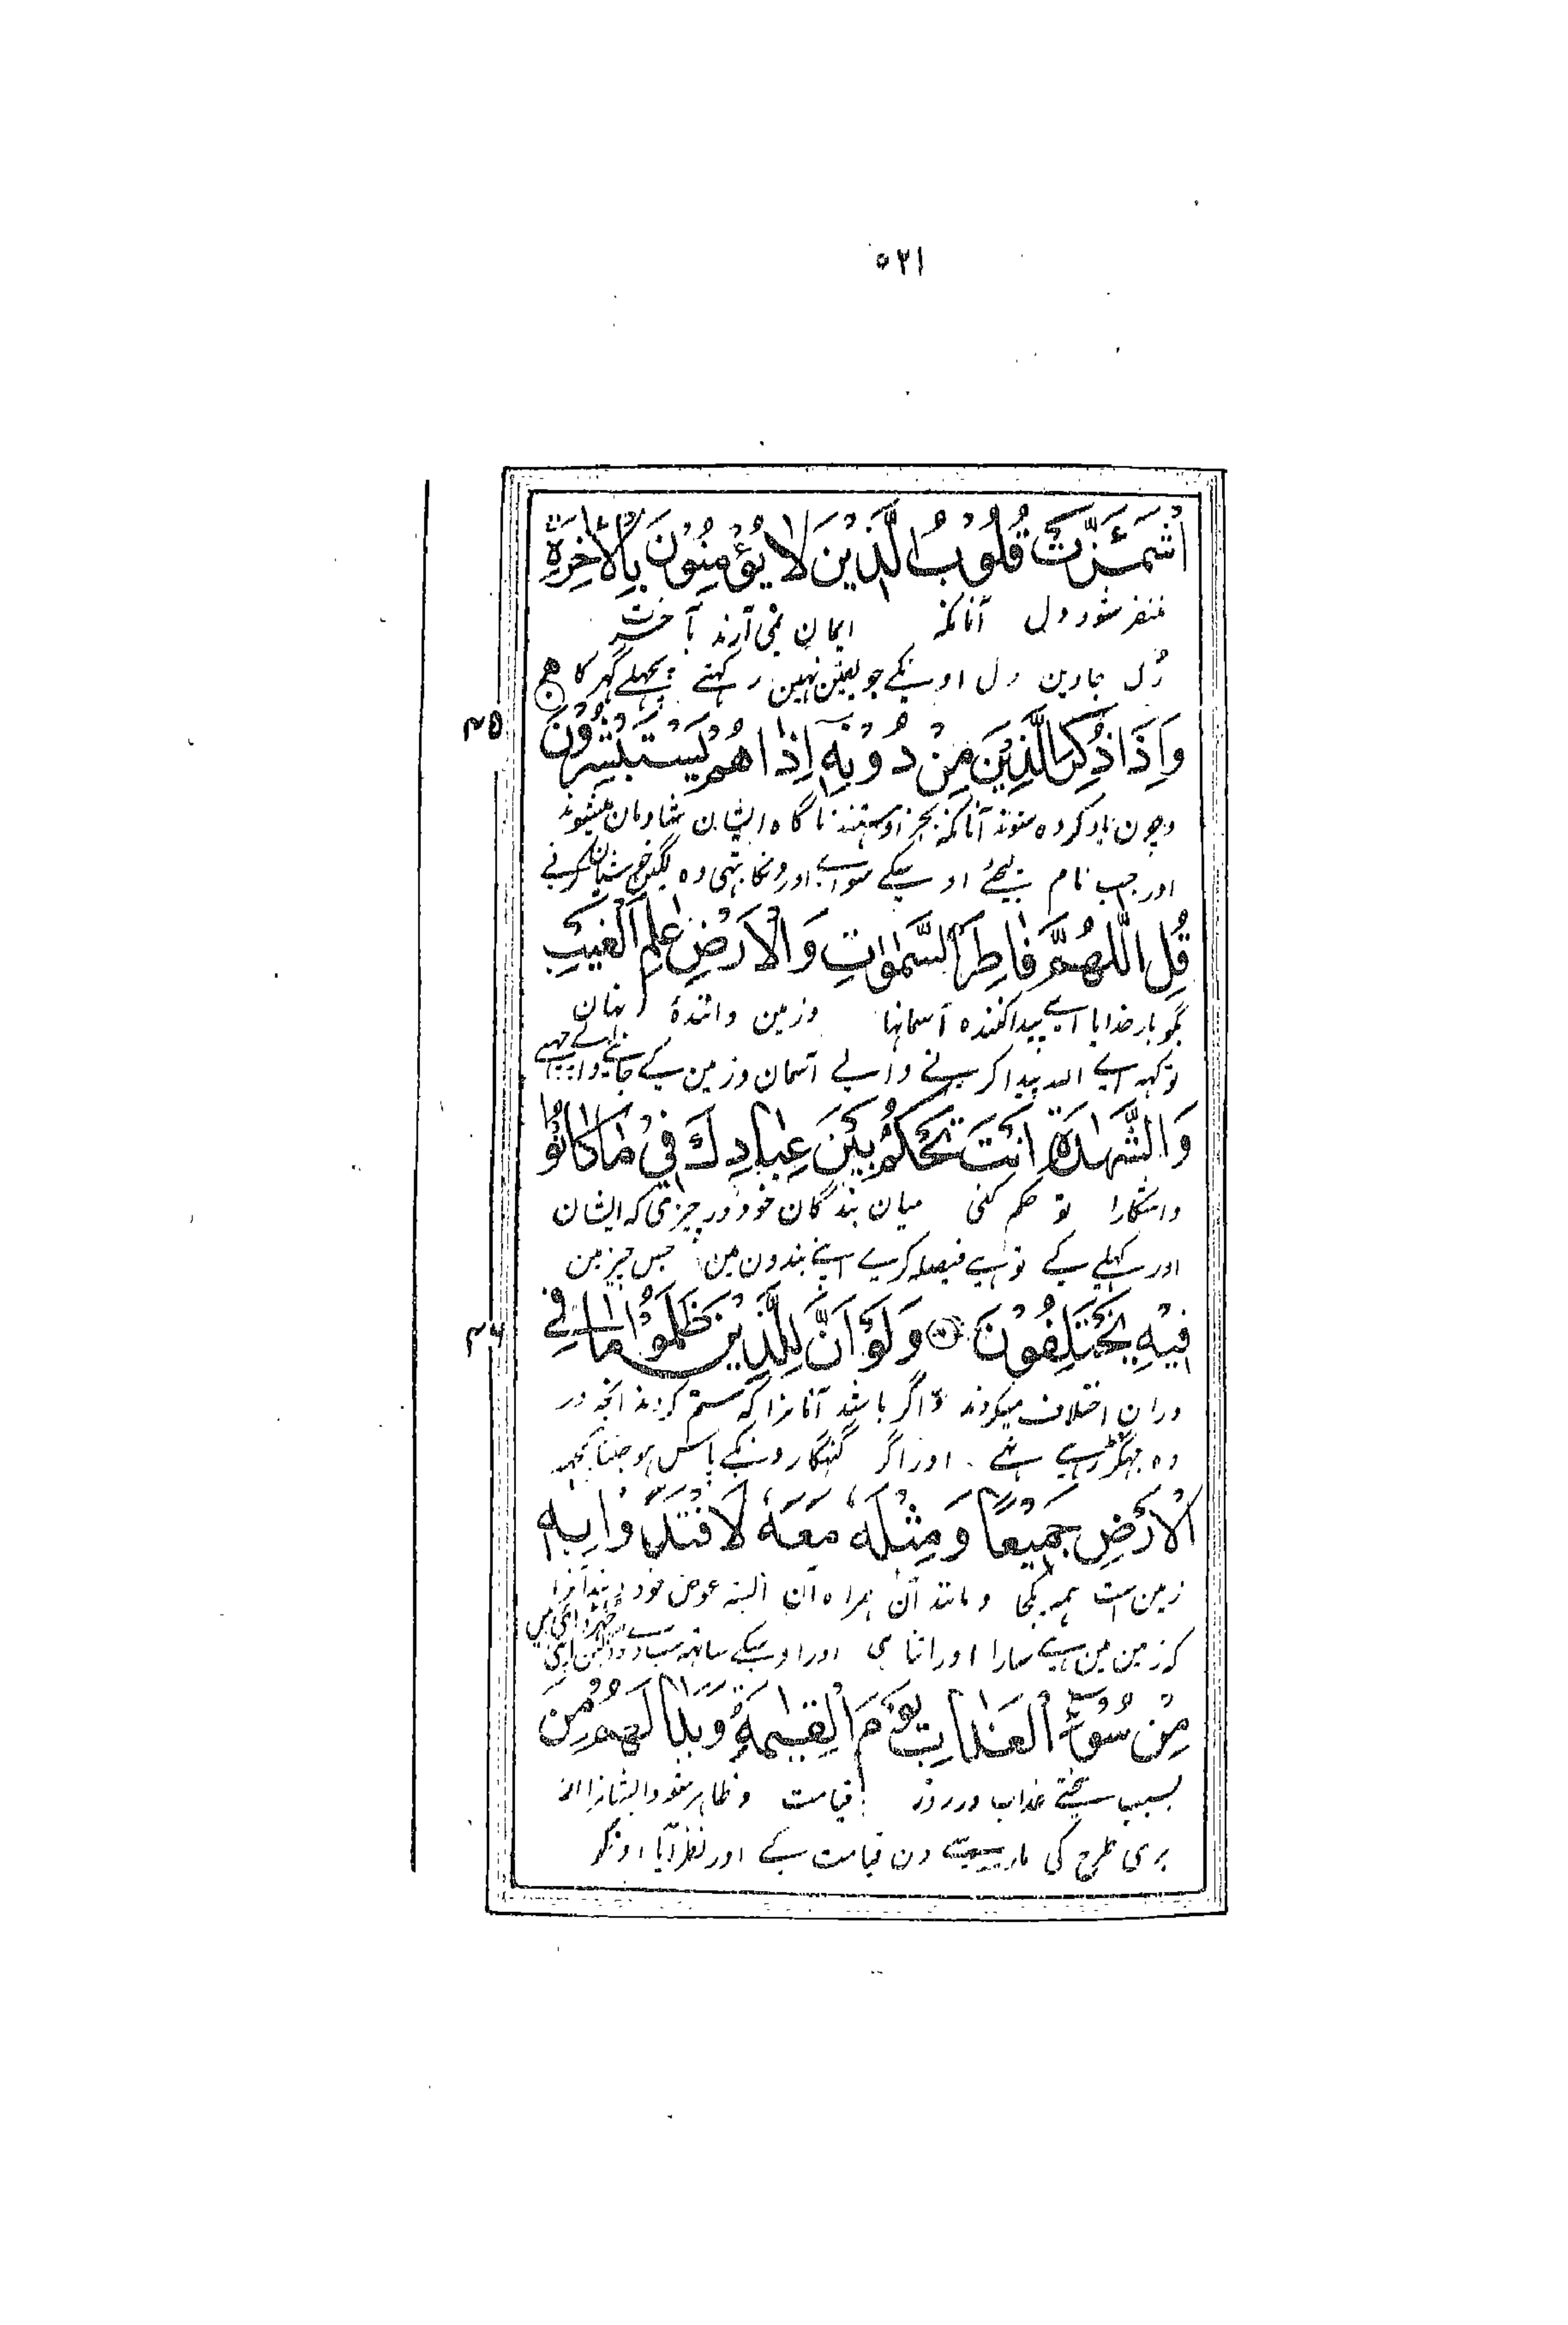 ٥٢١
اشْمَئَزَّتْ قُلُوْبُ الَّذِيْنَ لَا يُؤْمِنُوْنَ بِالْاٰخِرَةِ
متنفر شود دل آنانکه ایمان نمی آرند بآخرت
رُک جاوین دل اونکے جو یقین نہین رکہتے پچہلے گہر کا
٤٥
وَاِذَا ذُكِرَ الَّذِيْنَ مِنْ دُوْنِهٖ اِذَا هُمْ يَسْتَبْشِرُوْنَ
وچون یاد کرده شوند آنانکه بجز او هستند ناگاه ایشان شادمان میشوند
اور جب نام لیجئے اوسکے سوائے اورونکا تبہی وہ لگین خوشیان کرنے
قُلِ اللّٰهُمَّ فَاطِرَ السَّمٰوٰتِ وَالْاَرْضِ عٰلِمَ الْغَيْبِ
بگو بار خدایا اے پیدا کننده آسمانها وزمین دانندۀ نهان
تو کہہ اے اللہ پیدا کرنے والے آسمان وزمین کے جاننے والے چہپے
وَالشَّهَادَةِ اَنْتَ تَحْكُمُ بَيْنَ عِبَادِكَ فِيْ مَا كَانُوْا
واشکارا تو حکم کنی میان بندگان خود در چیزی که ایشان
اور کہلے کے توہی فیصلہ کرے اپنے بندون مین جس چیز مین
فِيْهِ يَخْتَلِفُوْنَ وَلَوْ اَنَّ لِلَّذِيْنَ ظَلَمُوْا مَا فِي
٤٦
دران اختلاف میکردند و اگر باشد آنانرا که ستم کردند آنچه در
وہ جہگڑ رہے تہے اور اگر گنہگارونکے پاس ہو جتنا کچہہ
الْاَرْضِ جَمِيْعًا وَّمِثْلَهٗ مَعَهٗ لَافْتَدَوْا بِهٖ
زمین است همه یکجا ومانند آن همراه آن البته عوض خود دهند آنرا
کہ زمین مین ہے سارا اور اتنا ہی اور اوسکے ساتہہ سب دے ڈالین اپنی
مِنْ سُوْٓءِ الْعَذَابِ يَوْمَ الْقِيٰمَةِ وَبَدَا لَهُمْ مِنَ
بسبب سختی عذاب در روز قیامت وظاهر شود ایشانرا از
بری طرح کی مار سے دن قیامت کے اور نظر آیا اونکو